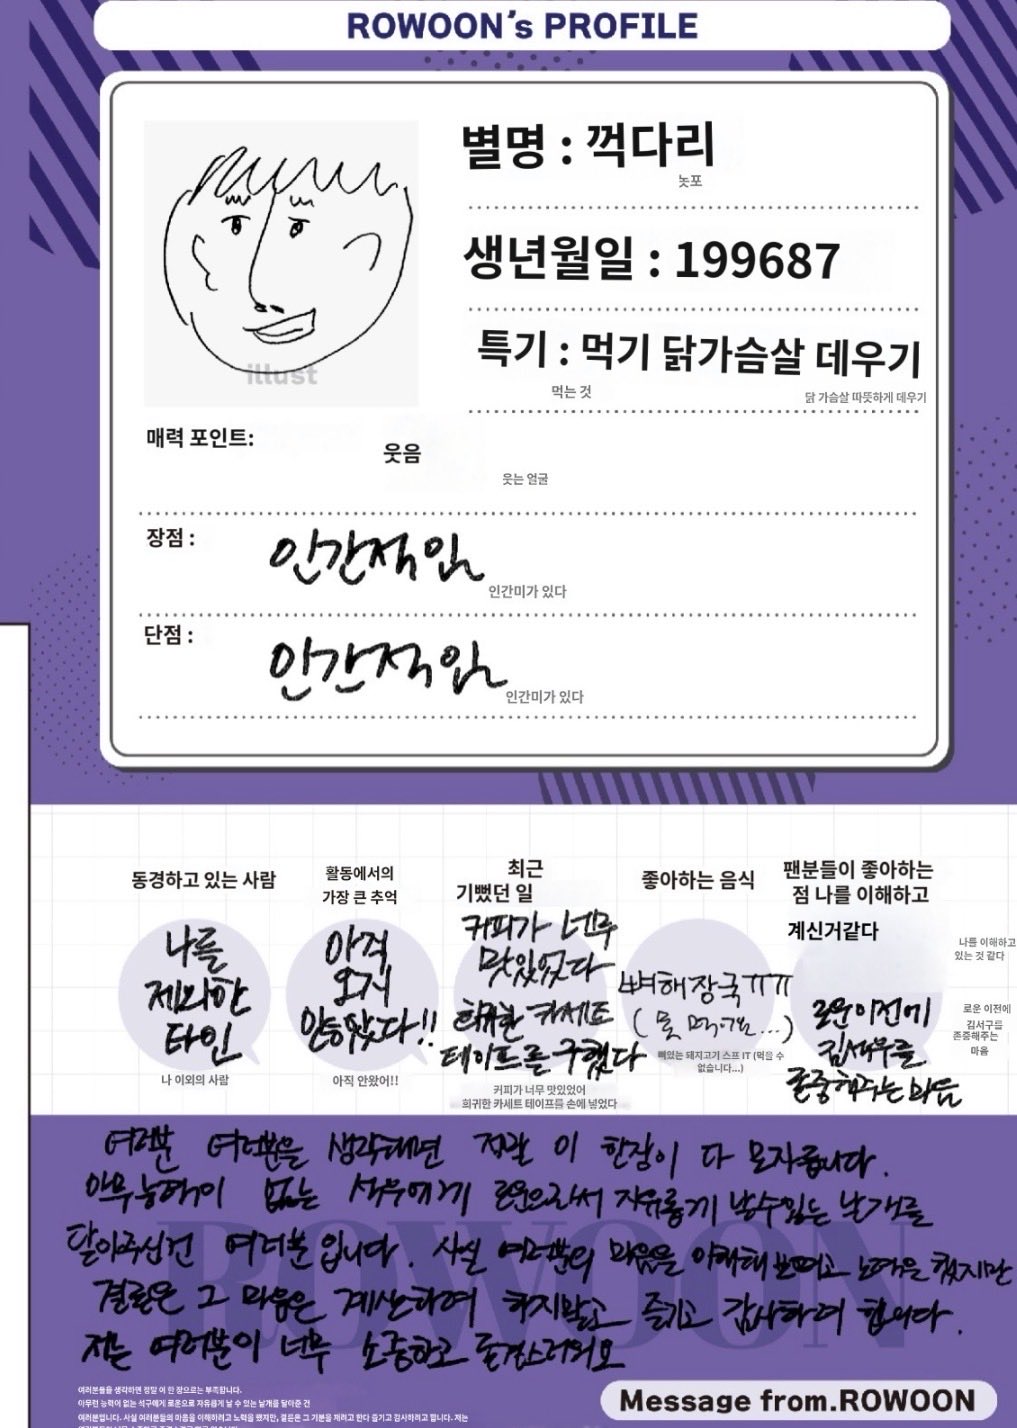 ROWOON's PROFILE
별명 : 꺽다리
놋포
생년월일 : 199687
특기 : 먹기 닭가슴살 데우기
먹는 것
닭 가슴살 따뜻하게 데우기
illust
매력 포인트:
웃음
웃는 얼굴
장점 :
인간적임
인간미가 있다
단점 :
인간적임
인간미가 있다
동경하고 있는 사람
나를
제외한
타인
나 이외의 사람
활동에서의
가장 큰 추억
아직
오지
않았다!!
아직 안왔어!!
최근
기뻤던 일
커피가 너무
맛있었다
희귀한 카세트
테이프를 구했다
커피가 너무 맛있었어
희귀한 카세트 테이프를 손에 넣었다
좋아하는 음식
뼈해장국ㅠㅠ
(못 먹어요...)
뼈있는 돼지고기 스프 IT (먹을 수
없습니다...)
팬분들이 좋아하는
점 나를 이해하고
계신거같다
나를 이해하고
있는 것 같다
로운이전에
김석우를
존중해주는 마음
로운 이전에
김서구를
존중해주는
마음
여러분 여러분을 생각하면 정말 이 한장이 다 모자릅니다.
아무능력이 없는 석우에게 로운으로서 자유롭게 날수있는 날개를
달아주신건 여러분입니다. 사실 여러분의 마음을 이해해보려고 노력을 했지만
결론은 그 마음은 계산하려 하지말고 즐기고 감사하려 합니다.
저는 여러분이 너무 소중하고 존경스러워요
ROWOON
여러분들을 생각하면 정말 이 한 장으로는 부족합니다.
아무런 능력이 없는 석구에게 로운으로 자유롭게 날 수 있는 날개를 달아준 건
여러분입니다. 사실 여러분들의 마음을 이해하려고 노력을 했지만, 결론은 그 기분을 재려고 한다 즐기고 감사하려고 합니다. 저는
Message from.ROWOON